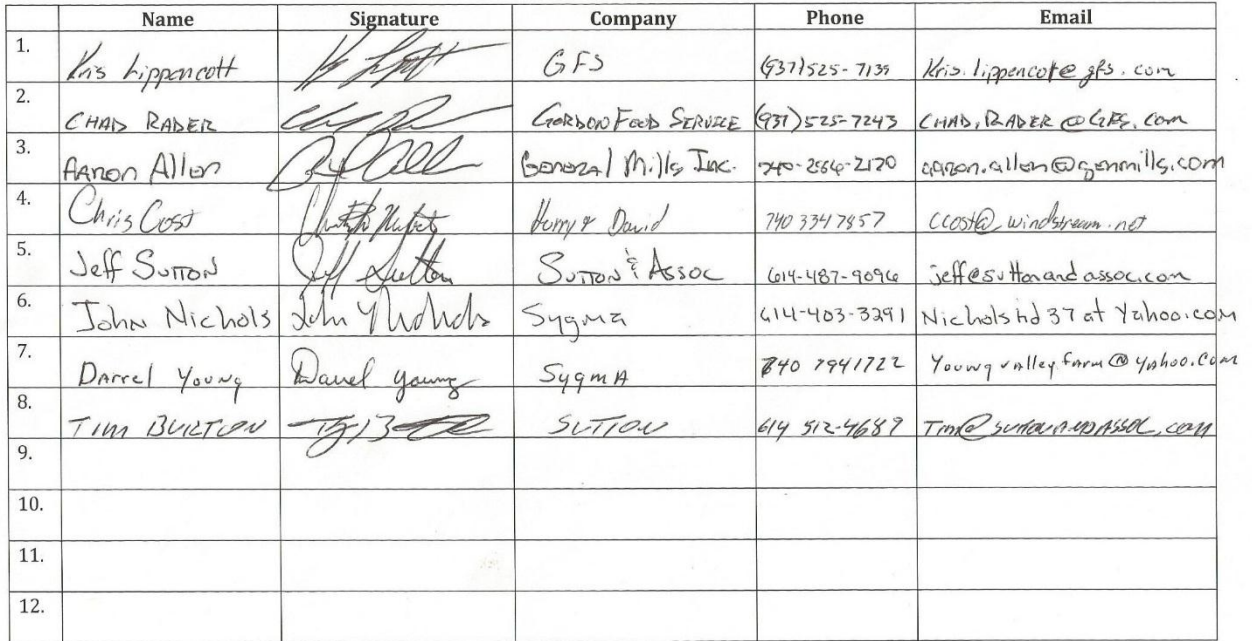 Name Signature Company Phone Email
1. Kris Lippencott GFS (937)525-7139 Kris.lippencott@gfs.com
2. CHAD RADER GORDON FOOD SERVICE (937)525-7243 CHAD.RADER@GFS.com
3. AARON Allen General Mills Inc. 740-256-2120 aaron.allen@genmills.com
4. Chris Cost Harry & David 740 334 7857 ccost@windstream.net
5. Jeff SUTTON SUTTON & Assoc 614-487-9096 jeff@suttonandassoc.com
6. John Nichols John Nichols Sygma 614-403-3291 Nicholshd37 at Yahoo.com
7. Darrel Young Darrel Young SygmA 740 7941722 Youngvalleyfarm@yahoo.com
8. TIM BURTON SUTTON 614 512-4689 Tim@SUTTONANDASSOC.com
9.
10.
11.
12.